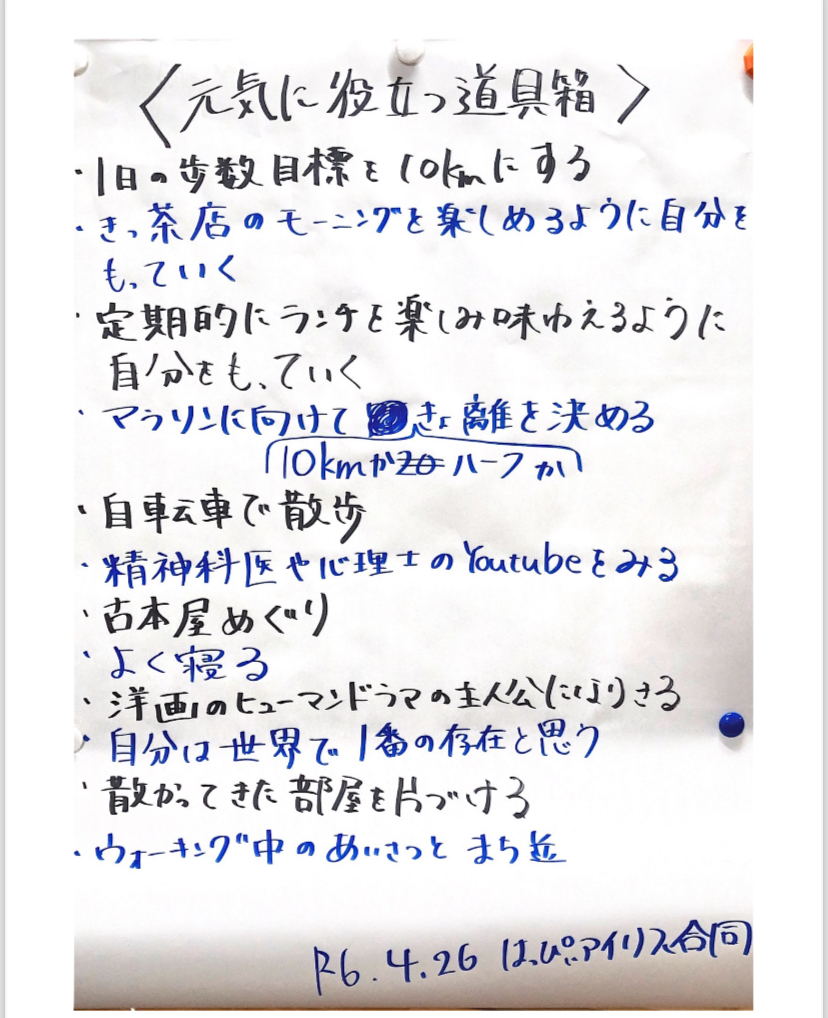 〈元気に役立つ道具箱〉
・1日の歩数目標を10kmにする
・きっ茶店のモーニングを楽しめるように自分を
もっていく
・定期的にランチを楽しみ味わえるように
自分をもっていく
・マラソンに向けて きょ離を決める
10kmか20ハーフか
・自転車で散歩
・精神科医や心理士のYoutubeをみる
・古本屋めぐり
・よく寝る
・洋画のヒューマンドラマの主人公になりきる
・自分は世界で1番の存在と思う
・散かってきた部屋を片づける
・ウォーキング中のあいさつと まち並
R6.4.26 はっぴぃアイリス合同